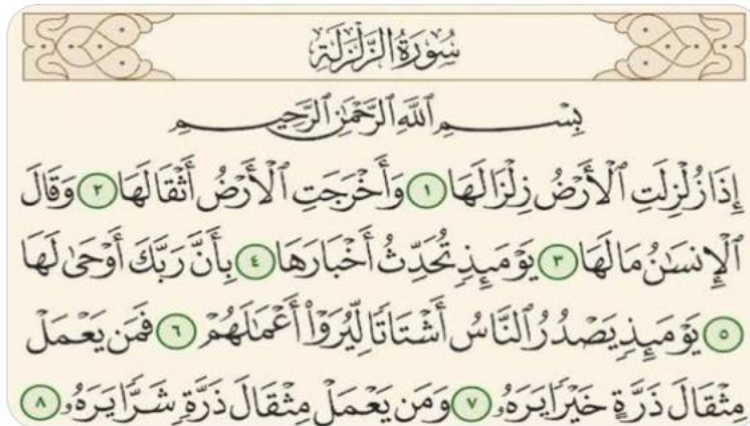 سُورَةُ الزَّلْزَلَةِ
بِسْمِ ٱللَّهِ ٱلرَّحْمَٰنِ ٱلرَّحِيمِ
إِذَا زُلْزِلَتِ ٱلْأَرْضُ زِلْزَالَهَا ١ وَأَخْرَجَتِ ٱلْأَرْضُ أَثْقَالَهَا ٢ وَقَالَ
ٱلْإِنسَٰنُ مَا لَهَا ٣ يَوْمَئِذٍ تُحَدِّثُ أَخْبَارَهَا ٤ بِأَنَّ رَبَّكَ أَوْحَىٰ لَهَا
٥ يَوْمَئِذٍ يَصْدُرُ ٱلنَّاسُ أَشْتَاتًا لِّيُرَوْا۟ أَعْمَٰلَهُمْ ٦ فَمَن يَعْمَلْ
مِثْقَالَ ذَرَّةٍ خَيْرًا يَرَهُۥ ٧ وَمَن يَعْمَلْ مِثْقَالَ ذَرَّةٍ شَرًّا يَرَهُۥ ٨